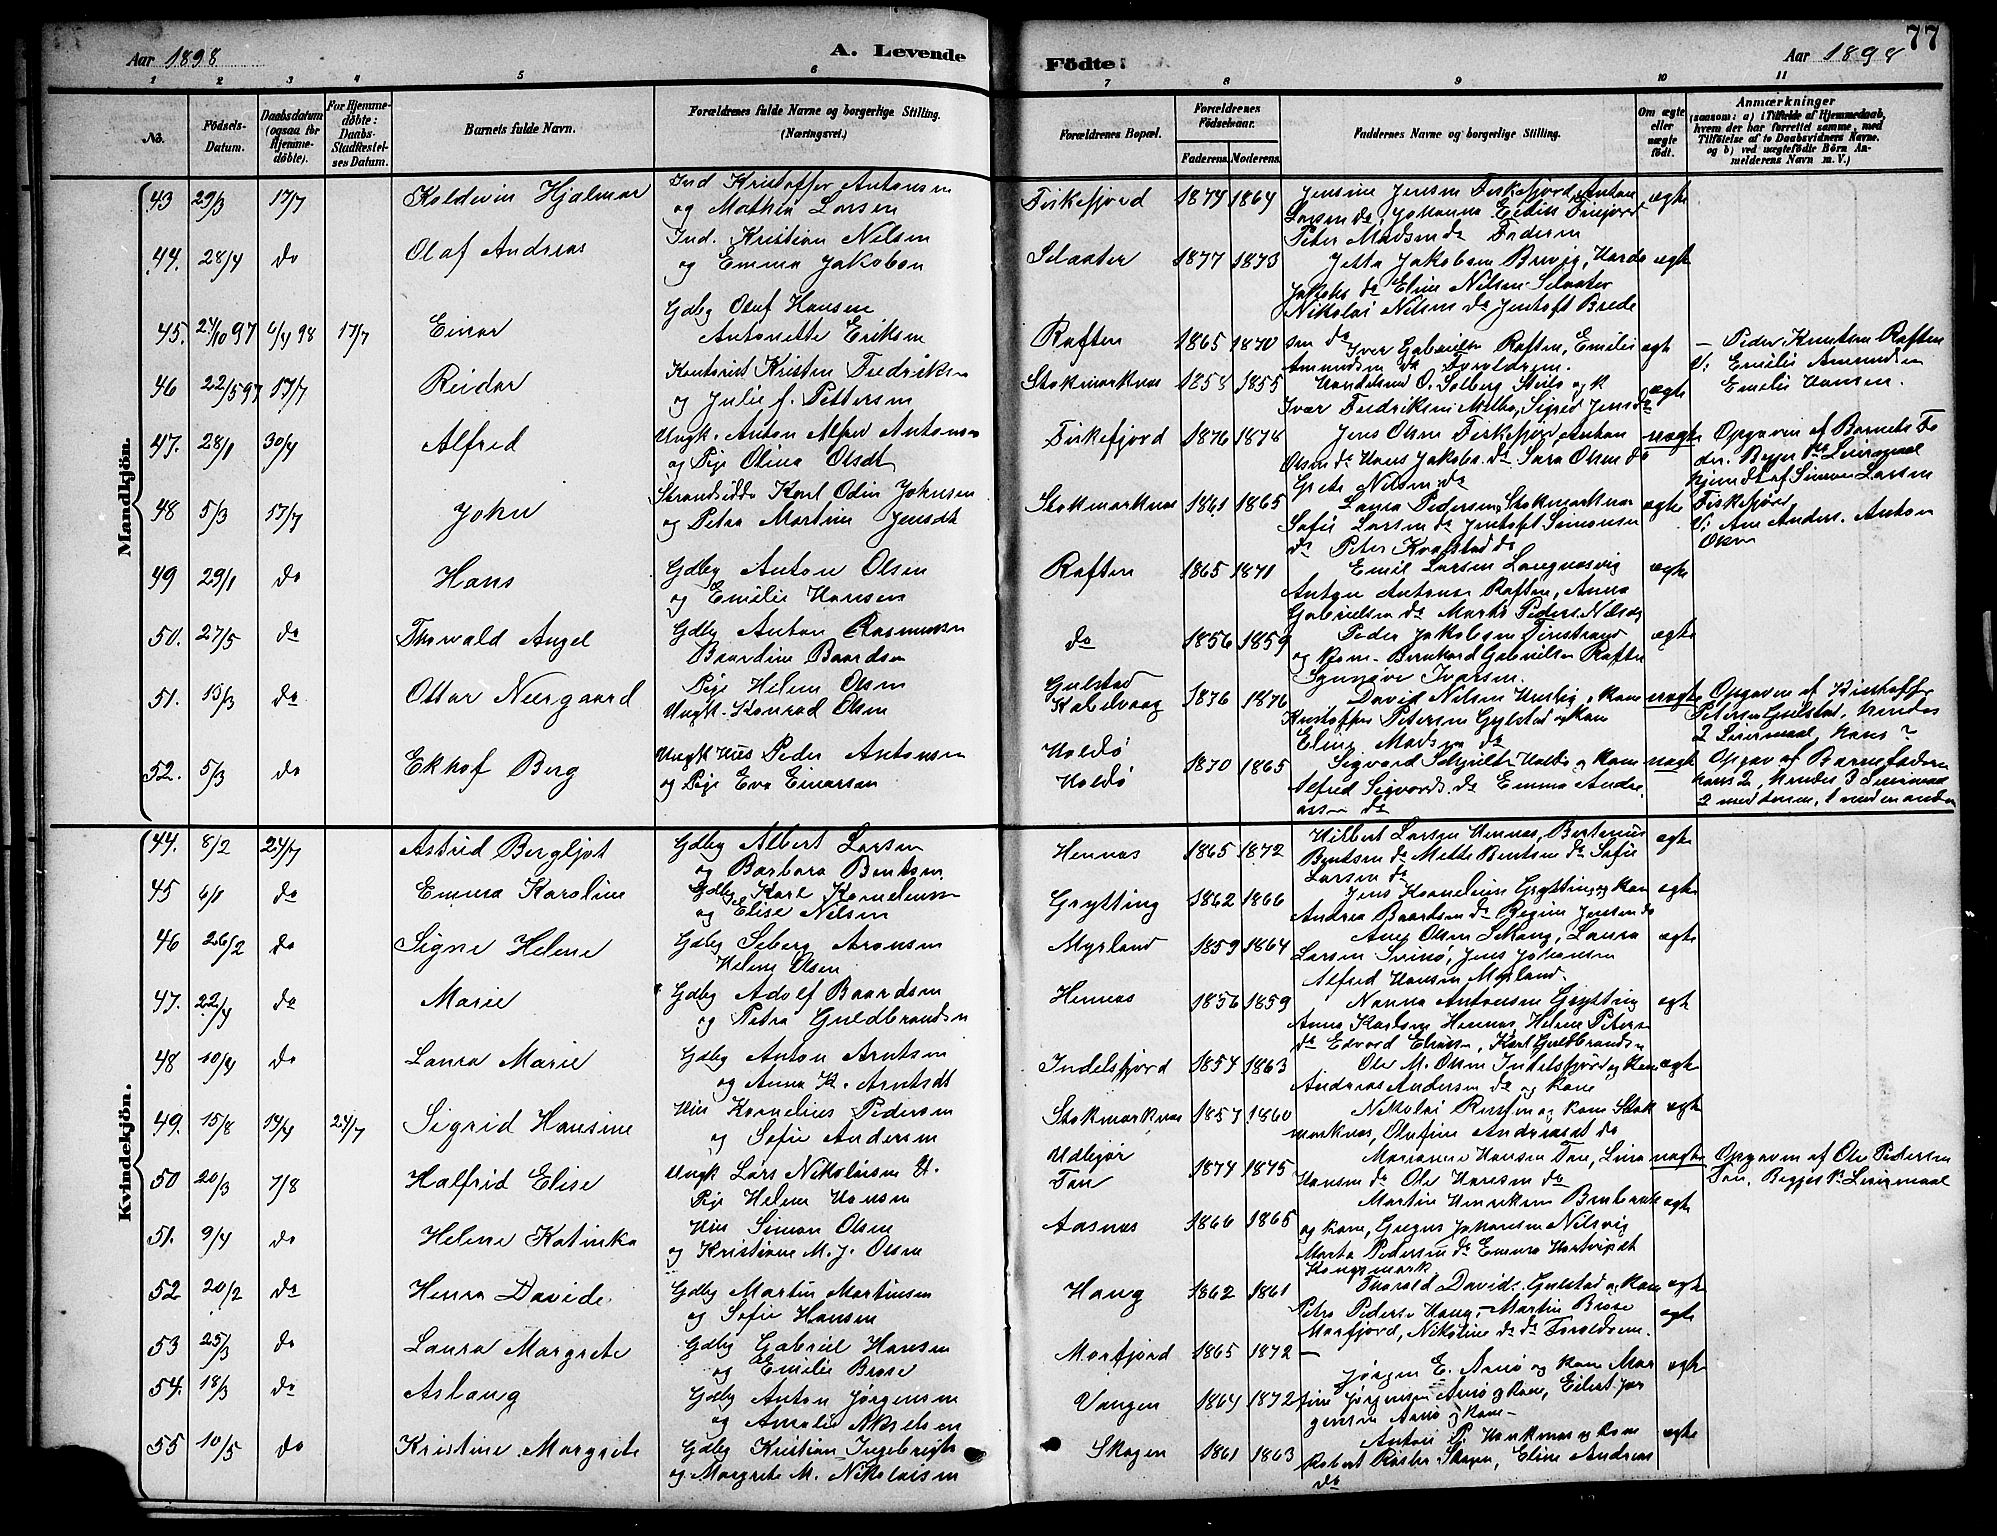 Aar 1898
A. Levende
Födte.
Aar 1898
77
1 2 3 4 5 6 7 8 9 10 11
No.
Födsels-
Datum.
Daabsdatum
(ogsaa for
Hjemme-
döbte).
For Hjemme-
döbte:
Daabs-
Stadfæstel-
ses Datum.
Barnets fulde Navn.
Forældrenes fulde Navne og borgerlige Stilling.
(Næringsvei.)
Forældrenes Bopæl.
Forældrenes
Födselsaar.
Faderens. Moderens.
Faddernes Navne og borgerlige Stilling.
Om ægte
eller
uægte
födt.
Anmærkninger
(saasom: a) i Tilfælde af Hjemmedaab,
hvem der har forrettet samme, med
Tilföielse af to Daabsvidners Navne.
og b) ved uægtefödte Börn An-
melderens Navn m. V.)
Mandkjön.
43 29/3 17/7 Koldevin Hjalmar
Ind Kristoffer Antonsen
og Mathea Larsen
Fiskefjord 1874 1864
Jensine Jensen Fiskefjord, Anton
Larsen do, Johanna
Peter Madsen do
ægte
44. 28/4 do Olaf Andreas
Ind. Kristian Nilsen
og Emma Jakobsen
Selaater 1877 1873
Jetta Jakobsen Brevig,
Jakobs do Eline Nilsen Selaater
Nikolai Nilsen do Jentoft Brede
ægte
45. 24/10 97 6/4 98 17/7 Einar
Gdbg Oluf Hansen
Antonette Eriksen
Raften 1865 1870
sen do Iver Gabrielsen Raften, Emilie
Amundsen do Forældrene.
ægte
- Peder Knutsen Raften
V: Emilie Amundsen
Emilie Hansen.
46 22/5 97 17/7 Reidar
Kontorist Kristen Fredriksen
og Julie f. Pettersen
Stokmarknæs 1858 1855
O. Solberg
Ivar Fredriksen Melbo, Sigrid Jens do
ægte
47. 28/1 30/4 Alfred
Ungk. Anton Alfred Antonsen
og Pige Olina Olsdt
Fiskefjord 1876 1878
Jens Olsen Fiskefjord, Anton
Olsen do Hans Jakobs. do Sara Olsen do
Grete Nilsen do
uægte
Opgaven af Barnets Fa
der. Begges 1ste Leiermaal
hjemdt af Simon Larsen
Fiskefjord
V: Ane Anders. Anton
Olsen
48 5/3 17/7 John
Strandsidder Karl Odin Johnsen
og Petra Martine Jensdt
Stokmarknæs 1861 1865
Laura Pedersen Stokmarknæs
Sofie Larsen do Jentoft Simonsen
do Peter Kvalstad do
ægte
49 29/1 do Hans
Gdbg Anton Olsen
og Emilie Hansen
Raften 1865 1871
Emil Larsen Langnæsvig
Anton Antons. Raften, Anna
Gabrielsen do Marta Peders. Nilsdt
ægte
50. 27/5 do Thorvald Angel
Gdbg Anton Rasmussen
Baardine Baardsen
do 1856 1859
Peder Jakobsen Finstrand
og Kone - Bernhard Gabrielsen Raften
Synnøve Ivarsen.
ægte
51. 15/3 do Ottar Neergaard
Pige Helene Olsen
Ungk. Konrad Olsen
Gulstad
Kabelvaag 1876 1876
David Nilsen Urstig, Kone
Kristoffer Petersen Gylstad og Kone
Eline Madsen do
uægte
Opgaven af Kristoffer
Petersen Gulstad, hendes
2 Leiermaal, hans ?
52. 5/3 do Ekhof Berg
Ungk Hus Peder Antonsen
og Pige Eva Einarsen
Holdø
Holdø 1870 1865
Sigvard Holdø og Kone
Alfred Sigvards. do Emma Andre
assen do
uægte
Opgav af Barnefaderen
hans 2, hendes 3 Leiermaal
2 med denne, 1 med en anden
Kvindekjön.
44. 8/2 24/7 Astrid Bergljot
Gdbg Albert Larsen
og Barbara Bentsen
Hennes 1865 1872
Hilbert Larsen Hennes, Bertenius
Bentsen do Mette Bentsen do Sofie
Larsen do
ægte
45 6/1 do Emma Karoline
Gdbg Karl Korneliussen
og Elise Nilsen
Grytting 1862 1866
Jens Kornelius Grytting og Kone
Andrea Baardsen do Regine Jensen do
ægte
46 26/2 do Signe Helene
Gdbg Seberg Aronsen
Helene Olsen
Myrland 1859 1864
Ane Olsen Skaug, Laura
Larsen Svinø, Jens Johansen
Alfred Hansen Myrland.
ægte
47. 22/4 do Marie
Gdbg Adolf Baardsen
og Petra Guldbrandsen
Hennes 1856 1859
Nanna Antonsen Grytting
Anna Karlsen Hennes, Helene Peters
do Edvard Eliasen, Karl Guldbrandsen
ægte
48 10/4 do Laura Marie
Gdbg Anton Arntsen
og Anna K. Arntsdt
Indelsfjord 1854 1863
Ole M. Olsen Indelsfjord og Kone
Andreas Andersen do og Kone
ægte
49. 15/8 14/4 24/7 Sigrid Hansine
Hus Kornelius Pedersen
og Sofie Andersen
Stokmarknæs 1857 1860
Nikolai og Kone Stok
marknæs, Olufine Andreasdt do
ægte
50 20/3 7/8 Halfrid Elise
Ungk Lars Nikolaisen
Pige Helene Hansen
Udbejør
Tøn 1874 1875
Marianne Hansen Tøn, Lina
Hansen do Ole Hansen do
uægte
Opgaven af Ole Pedersen
Tøn, Begges 1ste Leiermaal
51. 9/4 do Helene Katinka
Hus Simon Olsen
og Kristiane M. J. Olsen
Aasnæs 1866 1865
Martin Henriksen
og Kone, Gregus Johansen Nilsvig
Marta Pedersen do Emma Hartvigsdt
Kongsmark
ægte
52 20/2 do Henra Davide
Gdbg Martin Mortensen
og Sofie Hansen
Haug 1862 1861
Thorald Davids. Gulstad og Kone
Petra Pederse Haug, - Martin Brose
Morfjord, Nikoline do do Forældrene.
ægte
ægte
53 25/3 do Laura Margrete
Gdbg Gabriel Hansen
og Emilie Brose
Morfjord 1865 1872 —
54. 18/3 do Aslaug
Gdbg Anton Jørgensen
og Amalie Akselsen
Vangen 1864 1872
Jørgen E. Arnø og Kone Mar
tine Jørgensen Arnø og Kone, Eilert Jør
gensen Arnø og Kone -
ægte
55 10/5 do Kristine Margrete
Gdbg Kristian Ingebrigts
og Margrete M. Nikolaisen
Skogen 1861 1863
Anton P. og Kone
Robert Skogen, Eline Andreas
do
ægte